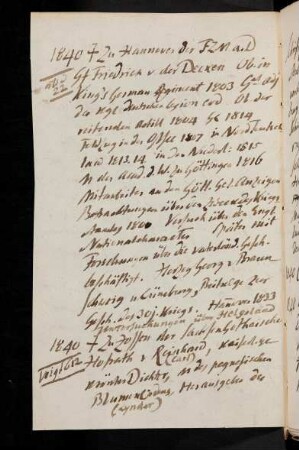 1840 † Zu Hannover der FZM a. D
Gf Friedrich v. der Decken Ob. in
King's German Regiment 1803 Gal
der kgl. deutschen Legion Ob. der
reitenden Artill 1804 Ge 1814
Feldzug in der Ostsee 1807 in Norddeutsch
land 1813.14 in den Niederl. 1815
M der Acad. d. W. zu Göttingen 1816
Mitarbeiter an den Gött. Gel. Anzeigen
Betrachtungen über den
1800 Versuch über den Engl.
Nationalcharacter Später mit
Forschungen über die vaterländ. Gesch.
beschäftigt. Herzog Georg v Braun
schweig u Lüneburg, Beiträge zur
Gesch. des 30j. Kriegs. Hannover 1833
Untersuchungen über Helgoland
1840 † Zu der Sachsen Gothaische
Hofrath v. Reinhard, kaiserlich
gekrönter Dichter, M des pegnesischen
Blumenordens, Herausgeber des